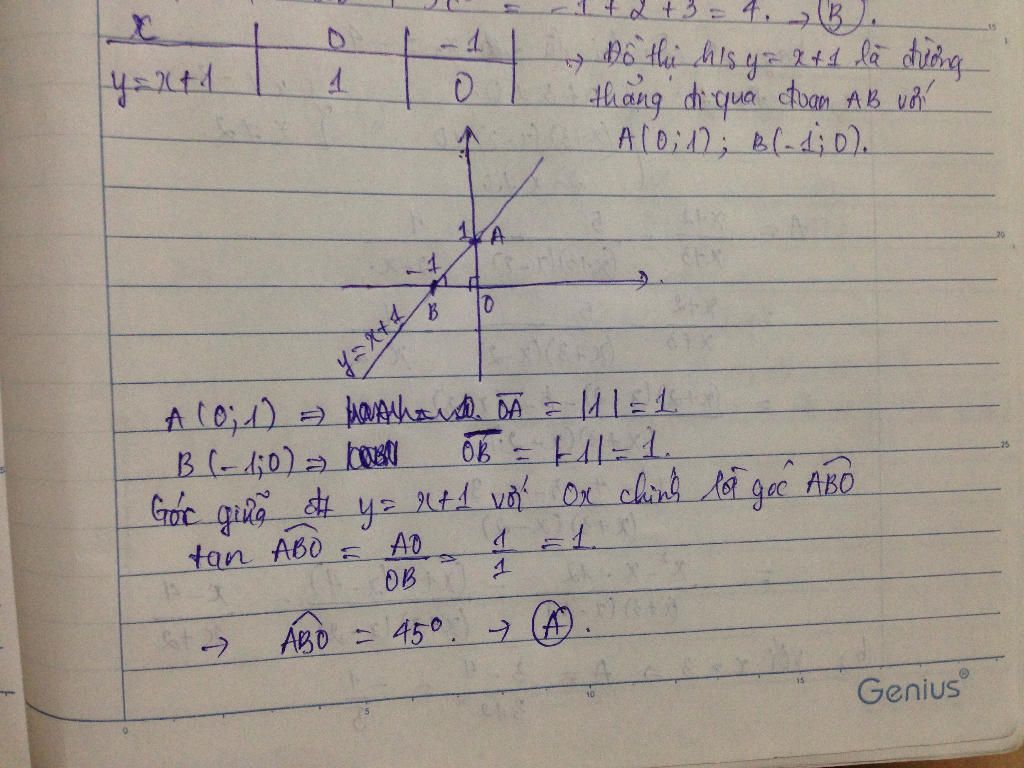 = -1 + 2 + 3 = 4. → B.
x | 0 | -1
y = x+1 | 1 | 0
→ Đồ thị h/s y = x+1 là đường
thẳng đi qua đoan AB với
A(0;1); B(-1;0).
1 A
-1
B O
y = x+1
A(0;1) ⇒ OA = |1| = 1.
B(-1;0) ⇒ OB = |-1| = 1.
Góc giữa đt y = x+1 với Ox chính là góc ABO
tan ABO = AO/OB = 1/1 = 1.
→ ABO = 45°. → A.
Genius®
0 5 10 15
15
20
25